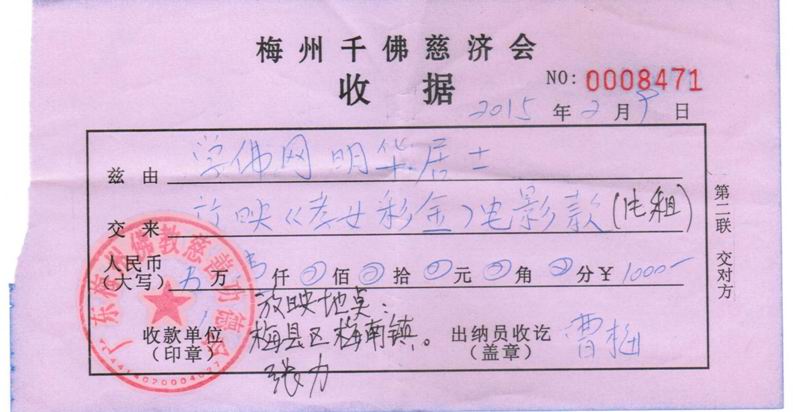 梅州千佛慈济会
收据
NO: 0008471
2015 年 2 月 9 日
兹由 学佛网 明华居士
交来 放映《孝女彩金》电影款(电租)
人民币(大写) 万 仟 0 佰 0 拾 0 元 0 角 0 分 ¥ 1000-
放映地点:
收款单位(印章) 梅县区梅南镇。 出纳员收讫(盖章) 曹梅
张力
第二联 交对方
4414070004027